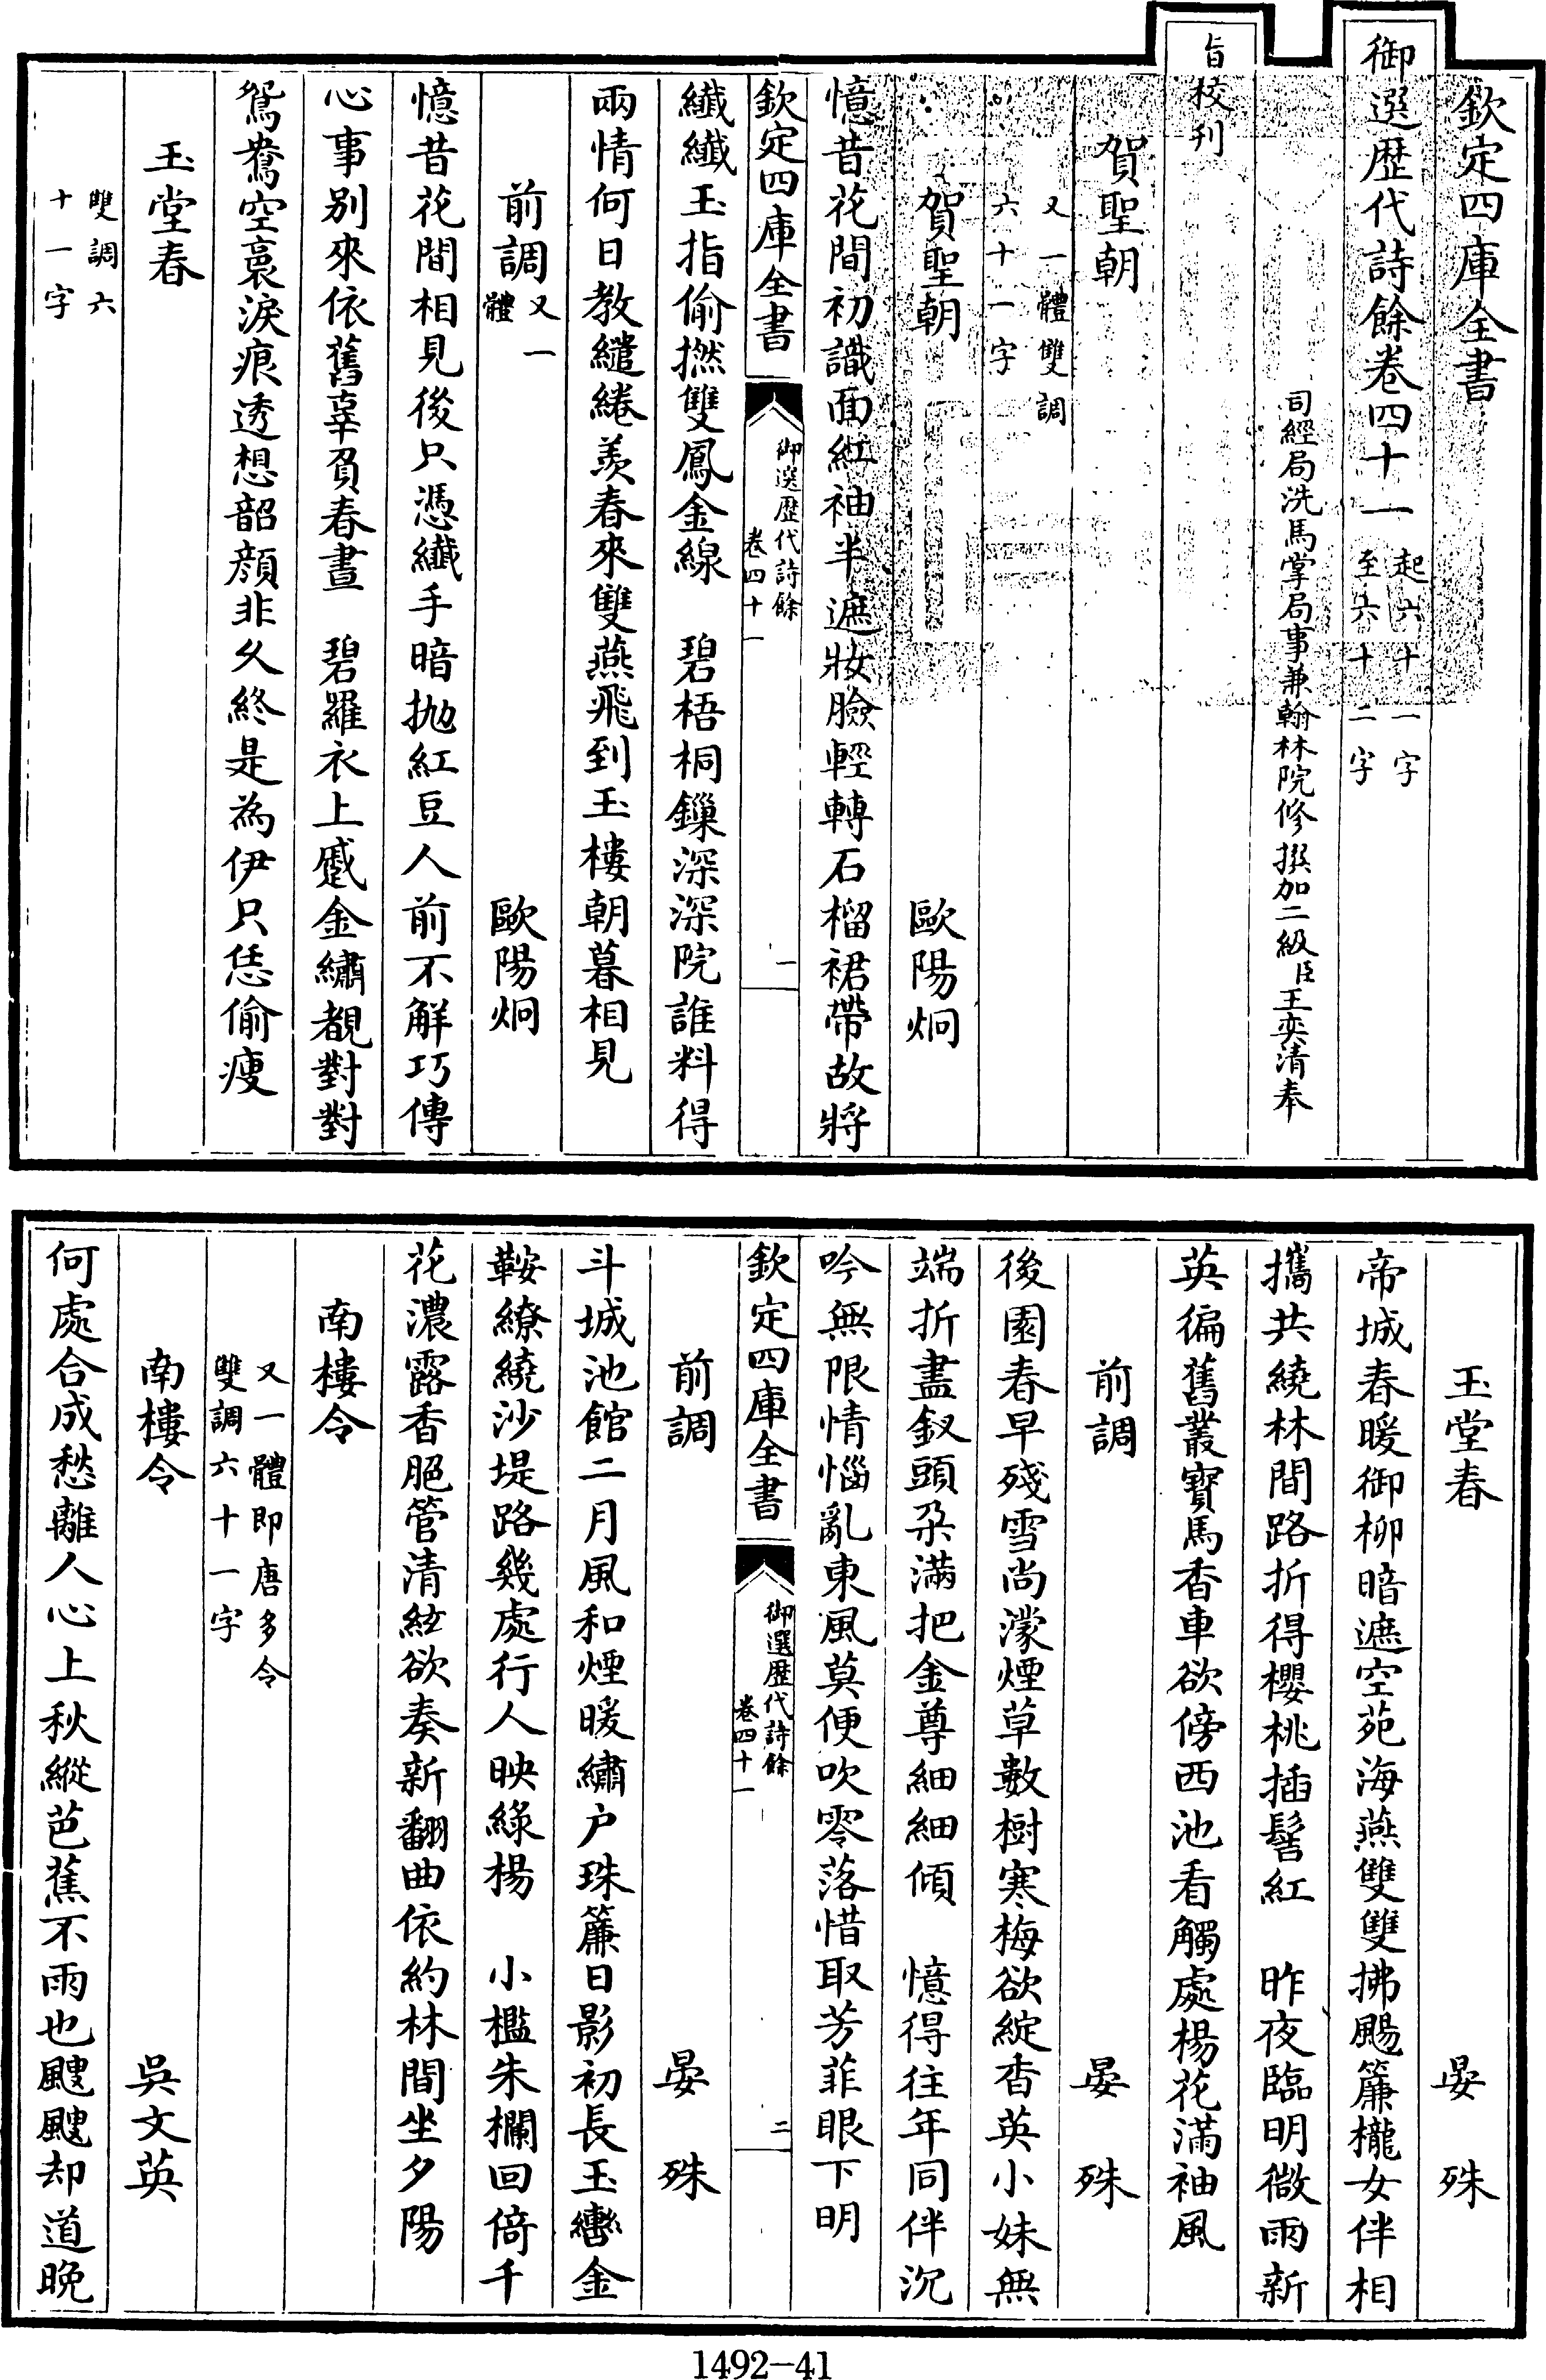 欽定四庫全書
御選歷代詩餘卷四十一起六十一字至六十二字
司經局洗馬掌局事兼翰林院修撰加二級臣王奕清奉
旨校刊
賀聖朝
又一體雙調六十一字
賀聖朝 歐陽炯
憶昔花間初識面紅袖半遮妝臉輕轉石榴裙帶故將
欽定四庫全書 御選歷代詩餘卷四十一 一
纖纖玉指偷撚雙鳳金線 碧梧桐鏁深深院誰料得
兩情何日教繾綣羨春來雙燕飛到玉樓朝暮相見
前調又一體 歐陽炯
憶昔花間相見後只憑纖手暗抛紅豆人前不解巧傳
心事別來依舊辜負春晝 碧羅衣上蹙金繡覩對對
鴛鴦空裛淚痕透想韶顔非久終是為伊只恁偷瘦
玉堂春
雙調六十一字
玉堂春 晏殊
帝城春暖御柳暗遮空苑海燕雙雙拂颺簾櫳女伴相
攜共繞林間路折得櫻桃插髻紅 昨夜臨明微雨新
英徧舊叢寳馬香車欲傍西池看觸處楊花滿袖風
前調 晏殊
後園春早殘雪尚濛煙草數樹寒梅欲綻香英小妹無
端折盡釵頭朶滿把金尊細細傾 憶得往年同伴沉
吟無限情惱亂東風莫便吹零落惜取芳菲眼下明
欽定四庫全書 御選歷代詩餘卷四十一 二
前調 晏殊
斗城池館二月風和煙暖繡户珠簾日影初長玉轡金
鞍繚繞沙堤路幾處行人映綠楊 小檻朱欄回倚千
花濃露香脆管清絃欲奏新翻曲依約林間坐夕陽
南樓令
又一體即唐多令雙調六十一字
南樓令 吳文英
何處合成愁離人心上秋縱芭蕉不雨也颼颼却道晚
1492-41